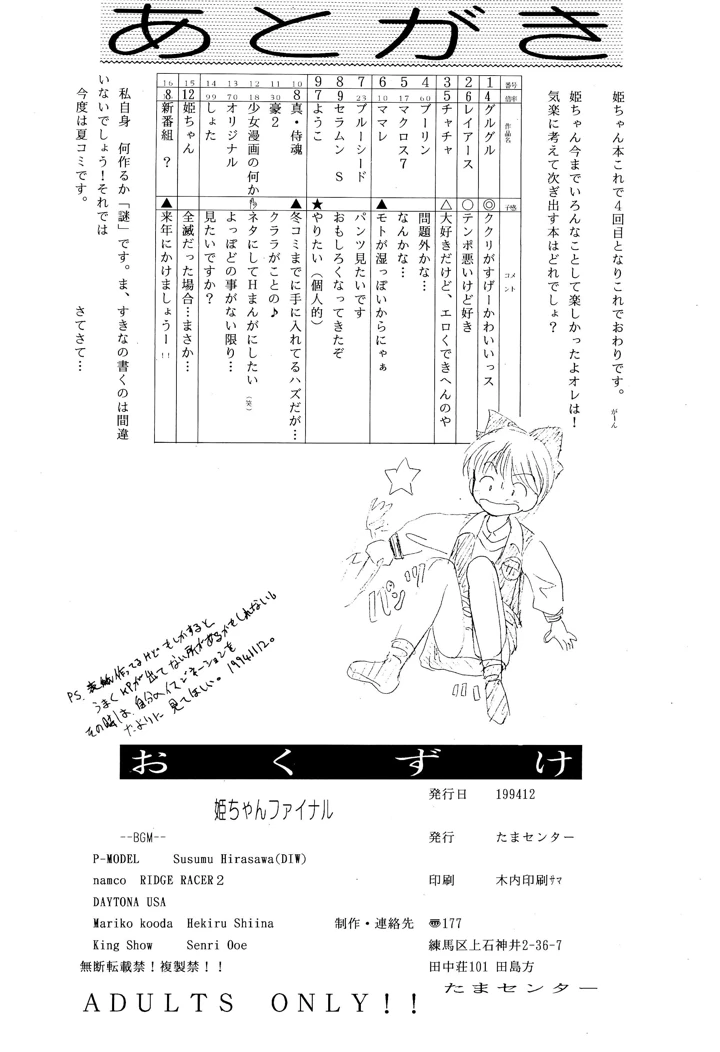 あとがき
姫ちゃん本これで4回目となりこれでおわりです。 がーん
姫ちゃん今までいろんなことして楽しかったよオレは!
気楽に考えて次ぎ出す本はどれでしょ?
番号 倍率 作品名 予感 コメント
1 4 グルグル ◎ ククリがすげーかわいいっス
2 6 レイアース ○ テンポ悪いけど好き
3 5 チャチャ △ 大好きだけど、エロくできへんのや
4 60 プーリン 問題外かな…
5 17 マクロス7 なんかな…
6 10 ママレ ▲ モトが湿っぽいからにゃぁ
7 23 ブルーシード パンツ見たいです
8 9 セラムン S おもしろくなってきたぞ
9 7 ようこ ★ やりたい(個人的)
10 8 真・侍魂 ▲ 冬コミまでに手に入れてるハズだが…
11 30 豪2 クララがことの♪
12 18 少女漫画の何か ネタにしてHまんがにしたい(笑)
13 70 オリジナル よっぽどの事がない限り…
14 99 しょた 見たいですか?
15 12 姫ちゃん 全滅だった場合…まさか…
16 8 新番組 ? ▲ 来年にかけましょうー!!
私自身 何作るか「謎」です。ま、すきなの書くのは間違
いないでしょう!それでは さてさて…
今度は夏コミです。
パンツ
PS.表紙作ってるけどもしかすると
うまくKPが出てない所があるかもしれない。
その時は、自分のイマジネーションを
たよりに見てほしい。19941112。
おくずけ
姫ちゃんファイナル
--BGM--
P-MODEL Susumu Hirasawa(DIW)
namco RIDGE RACER2
DAYTONA USA
Mariko kooda Hekiru Shiina
King Show Senri Ooe
無断転載禁!複製禁!!
発行日 199412
発行 たまセンター
印刷 木内印刷サマ
制作・連絡先 〠177
練馬区上石神井2-36-7
田中荘101 田島方
たまセンター
ADULTS ONLY!!